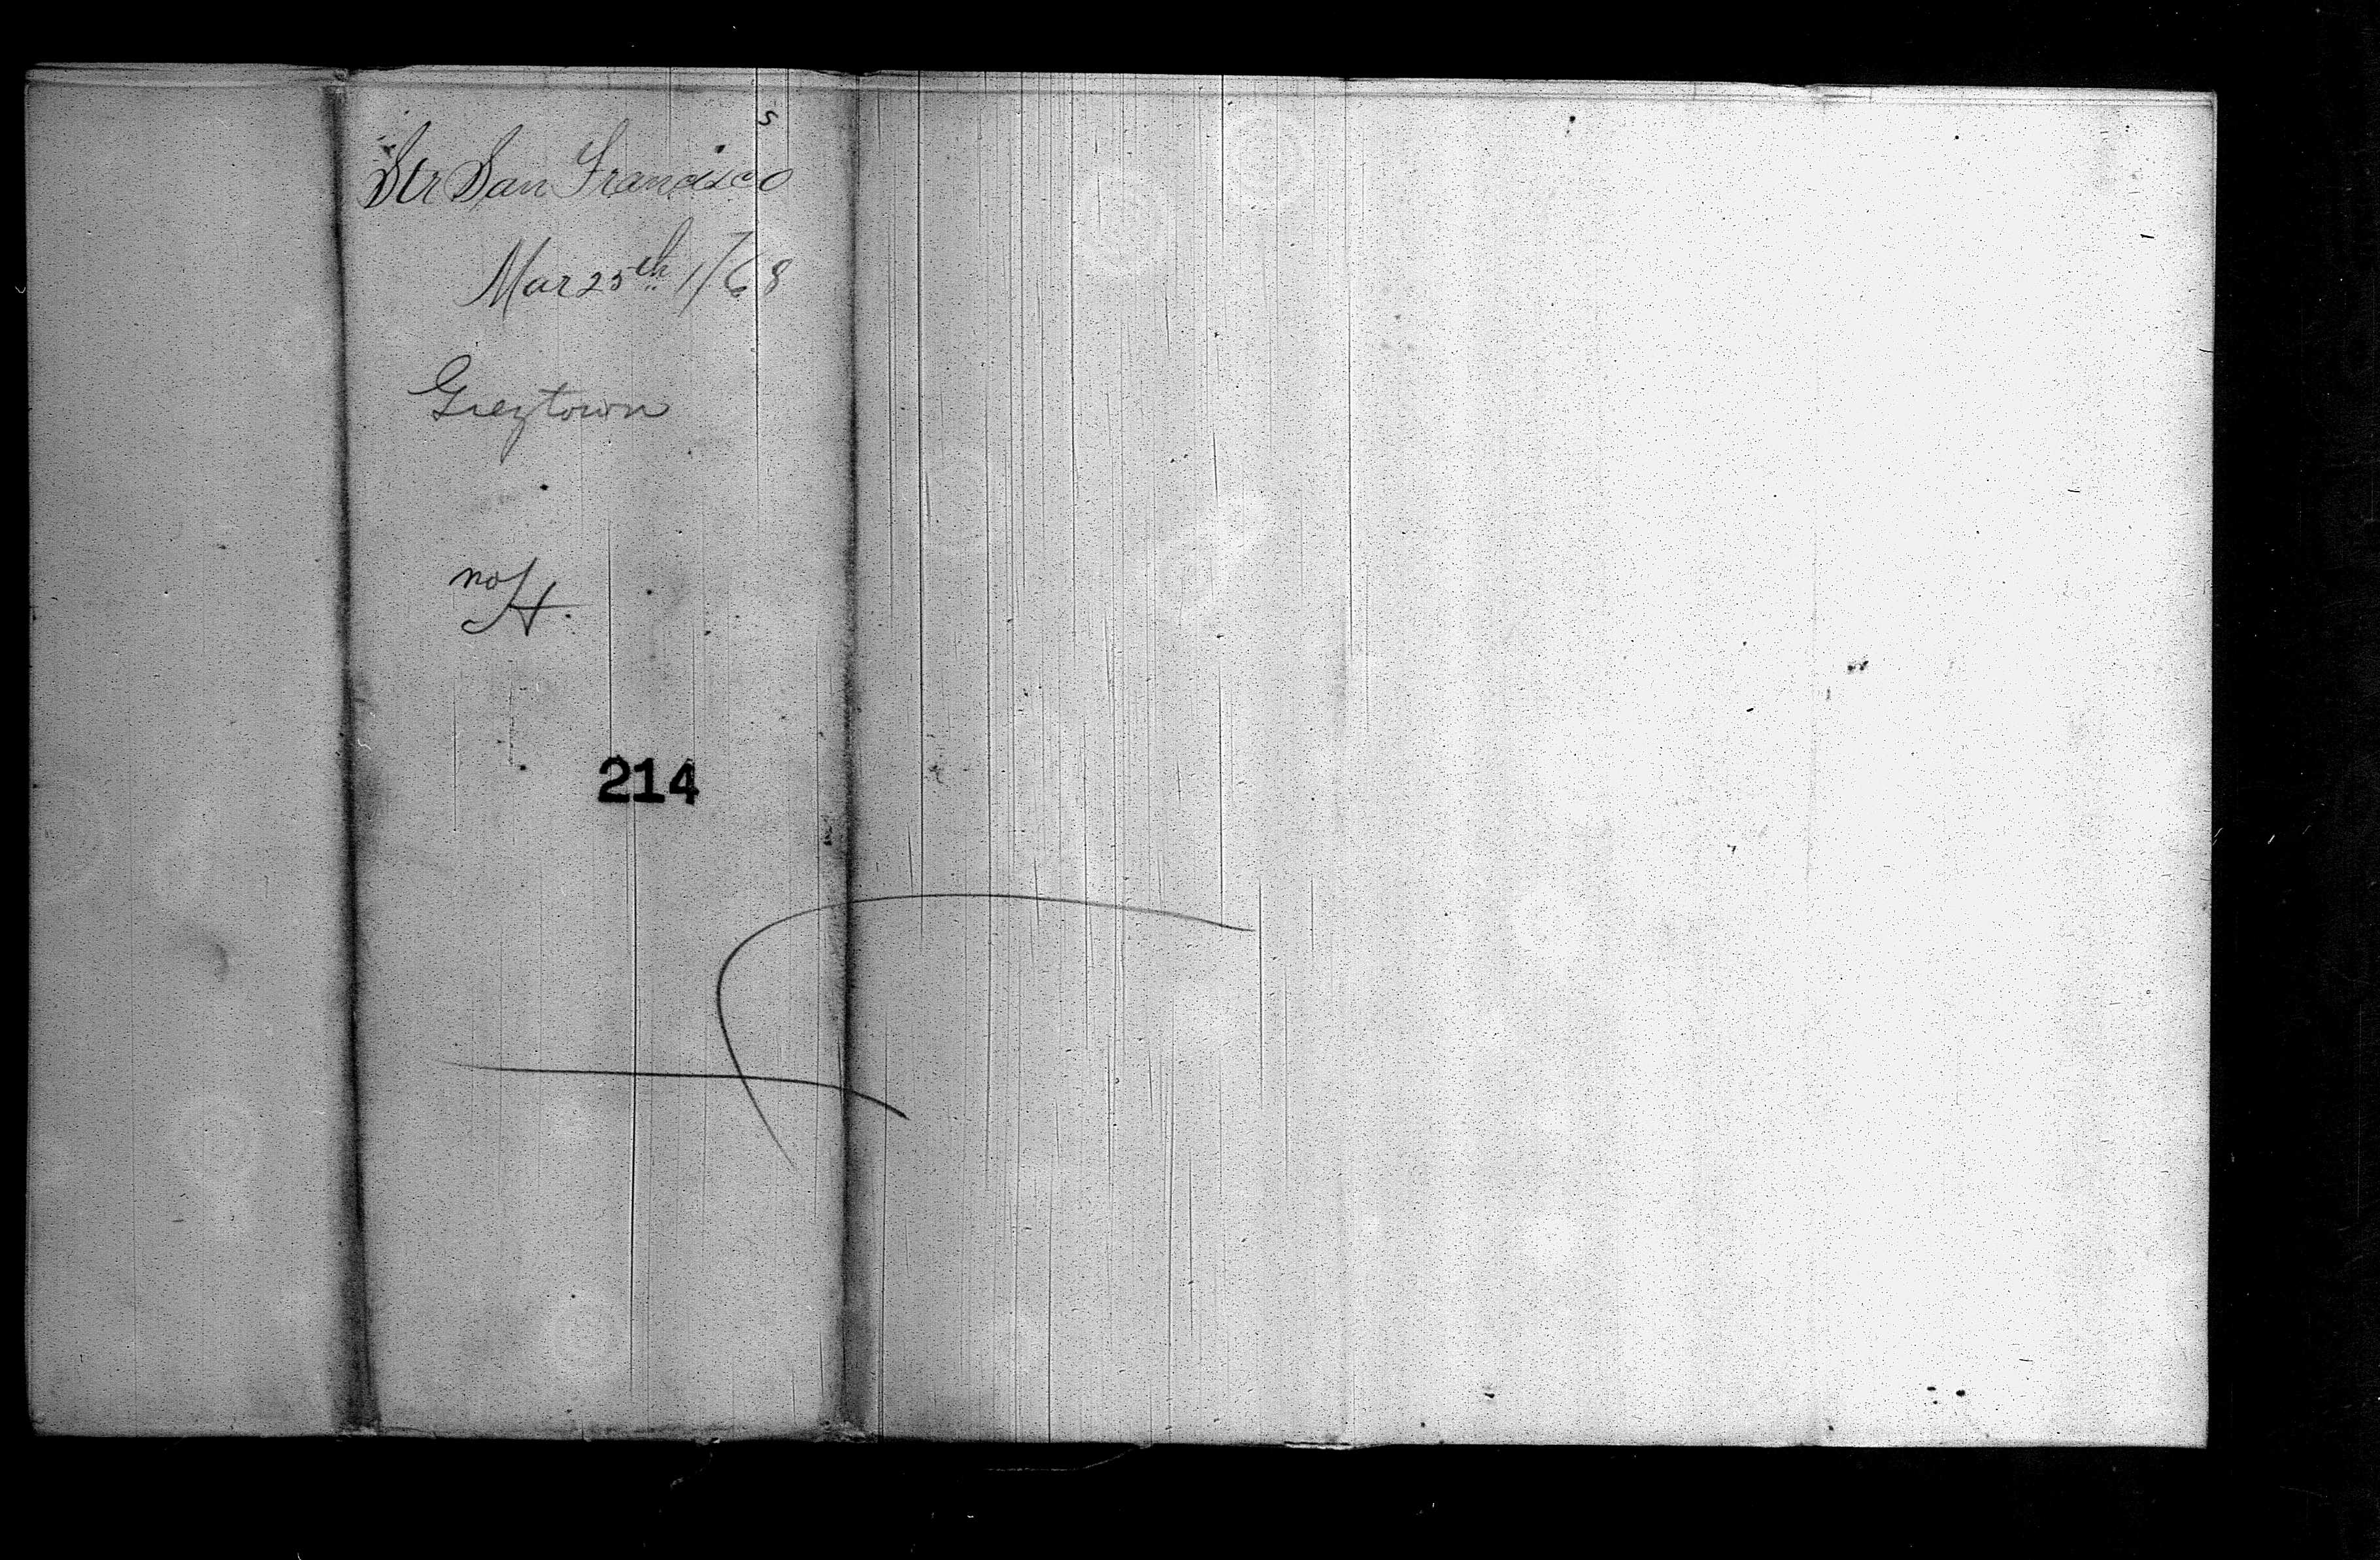 5
Str San Francisco
Mar 25th 1/68
Greytown
no
214